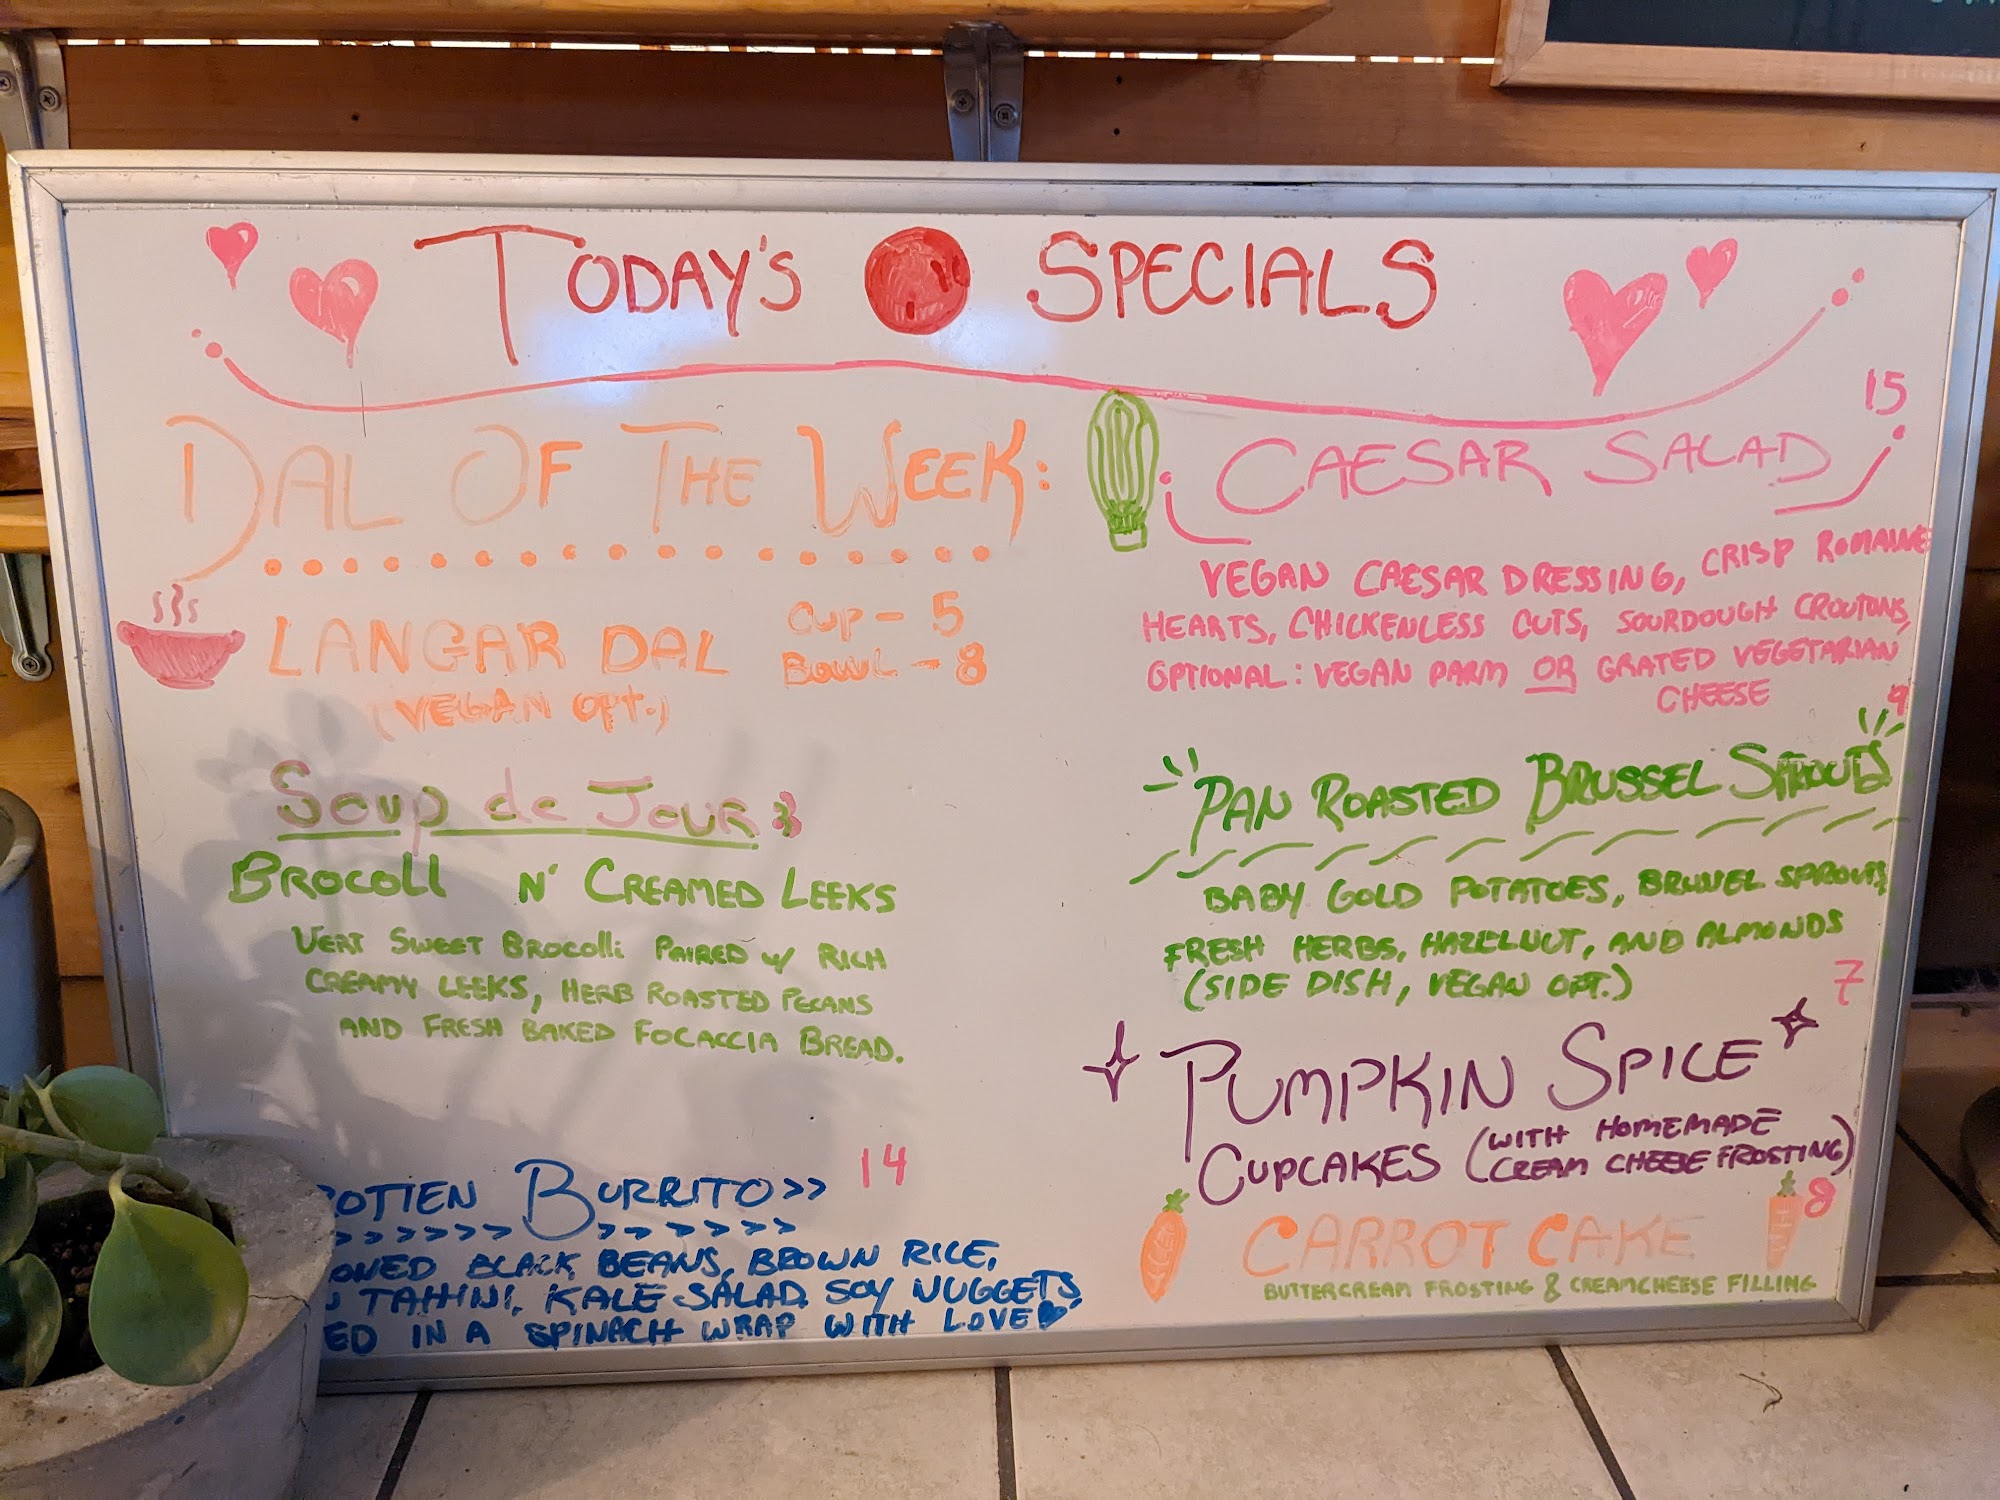 TODAY'S SPECIALS
DAL OF THE WEEK:
LANGAR DAL
CUP - 5
BOWL - 8
(VEGAN OPT.)
Soup de Jour:
BROCOLI N' CREAMED LEEKS
VERY SWEET BROCOLLI PAIRED w/ RICH
CREAMY LEEKS, HERB ROASTED PECANS
AND FRESH BAKED FOCACCIA BREAD.
14
ROTIEN BURRITO>>
>>>>>>> >>>>>>
ONED BLACK BEANS, BROWN RICE,
TAHINI, KALE SALAD, SOY NUGGETS,
ED IN A SPINACH WRAP WITH LOVE
15
CAESAR SALAD
VEGAN CAESAR DRESSING, CRISP ROMAINE
HEARTS, CHICKENLESS CUTS, SOURDOUGH CROUTONS,
OPTIONAL: VEGAN PARM OR GRATED VEGETARIAN
CHEESE
9
PAN ROASTED BRUSSEL SPROUTS
BABY GOLD POTATOES, BRUSSEL SPROUTS,
FRESH HERBS, HAZELNUT, AND ALMONDS
(SIDE DISH, VEGAN OPT.)
7
PUMPKIN SPICE
CUPCAKES (WITH HOMEMADE
CREAM CHEESE FROSTING)
8
CARROT CAKE
BUTTERCREAM FROSTING & CREAMCHEESE FILLING